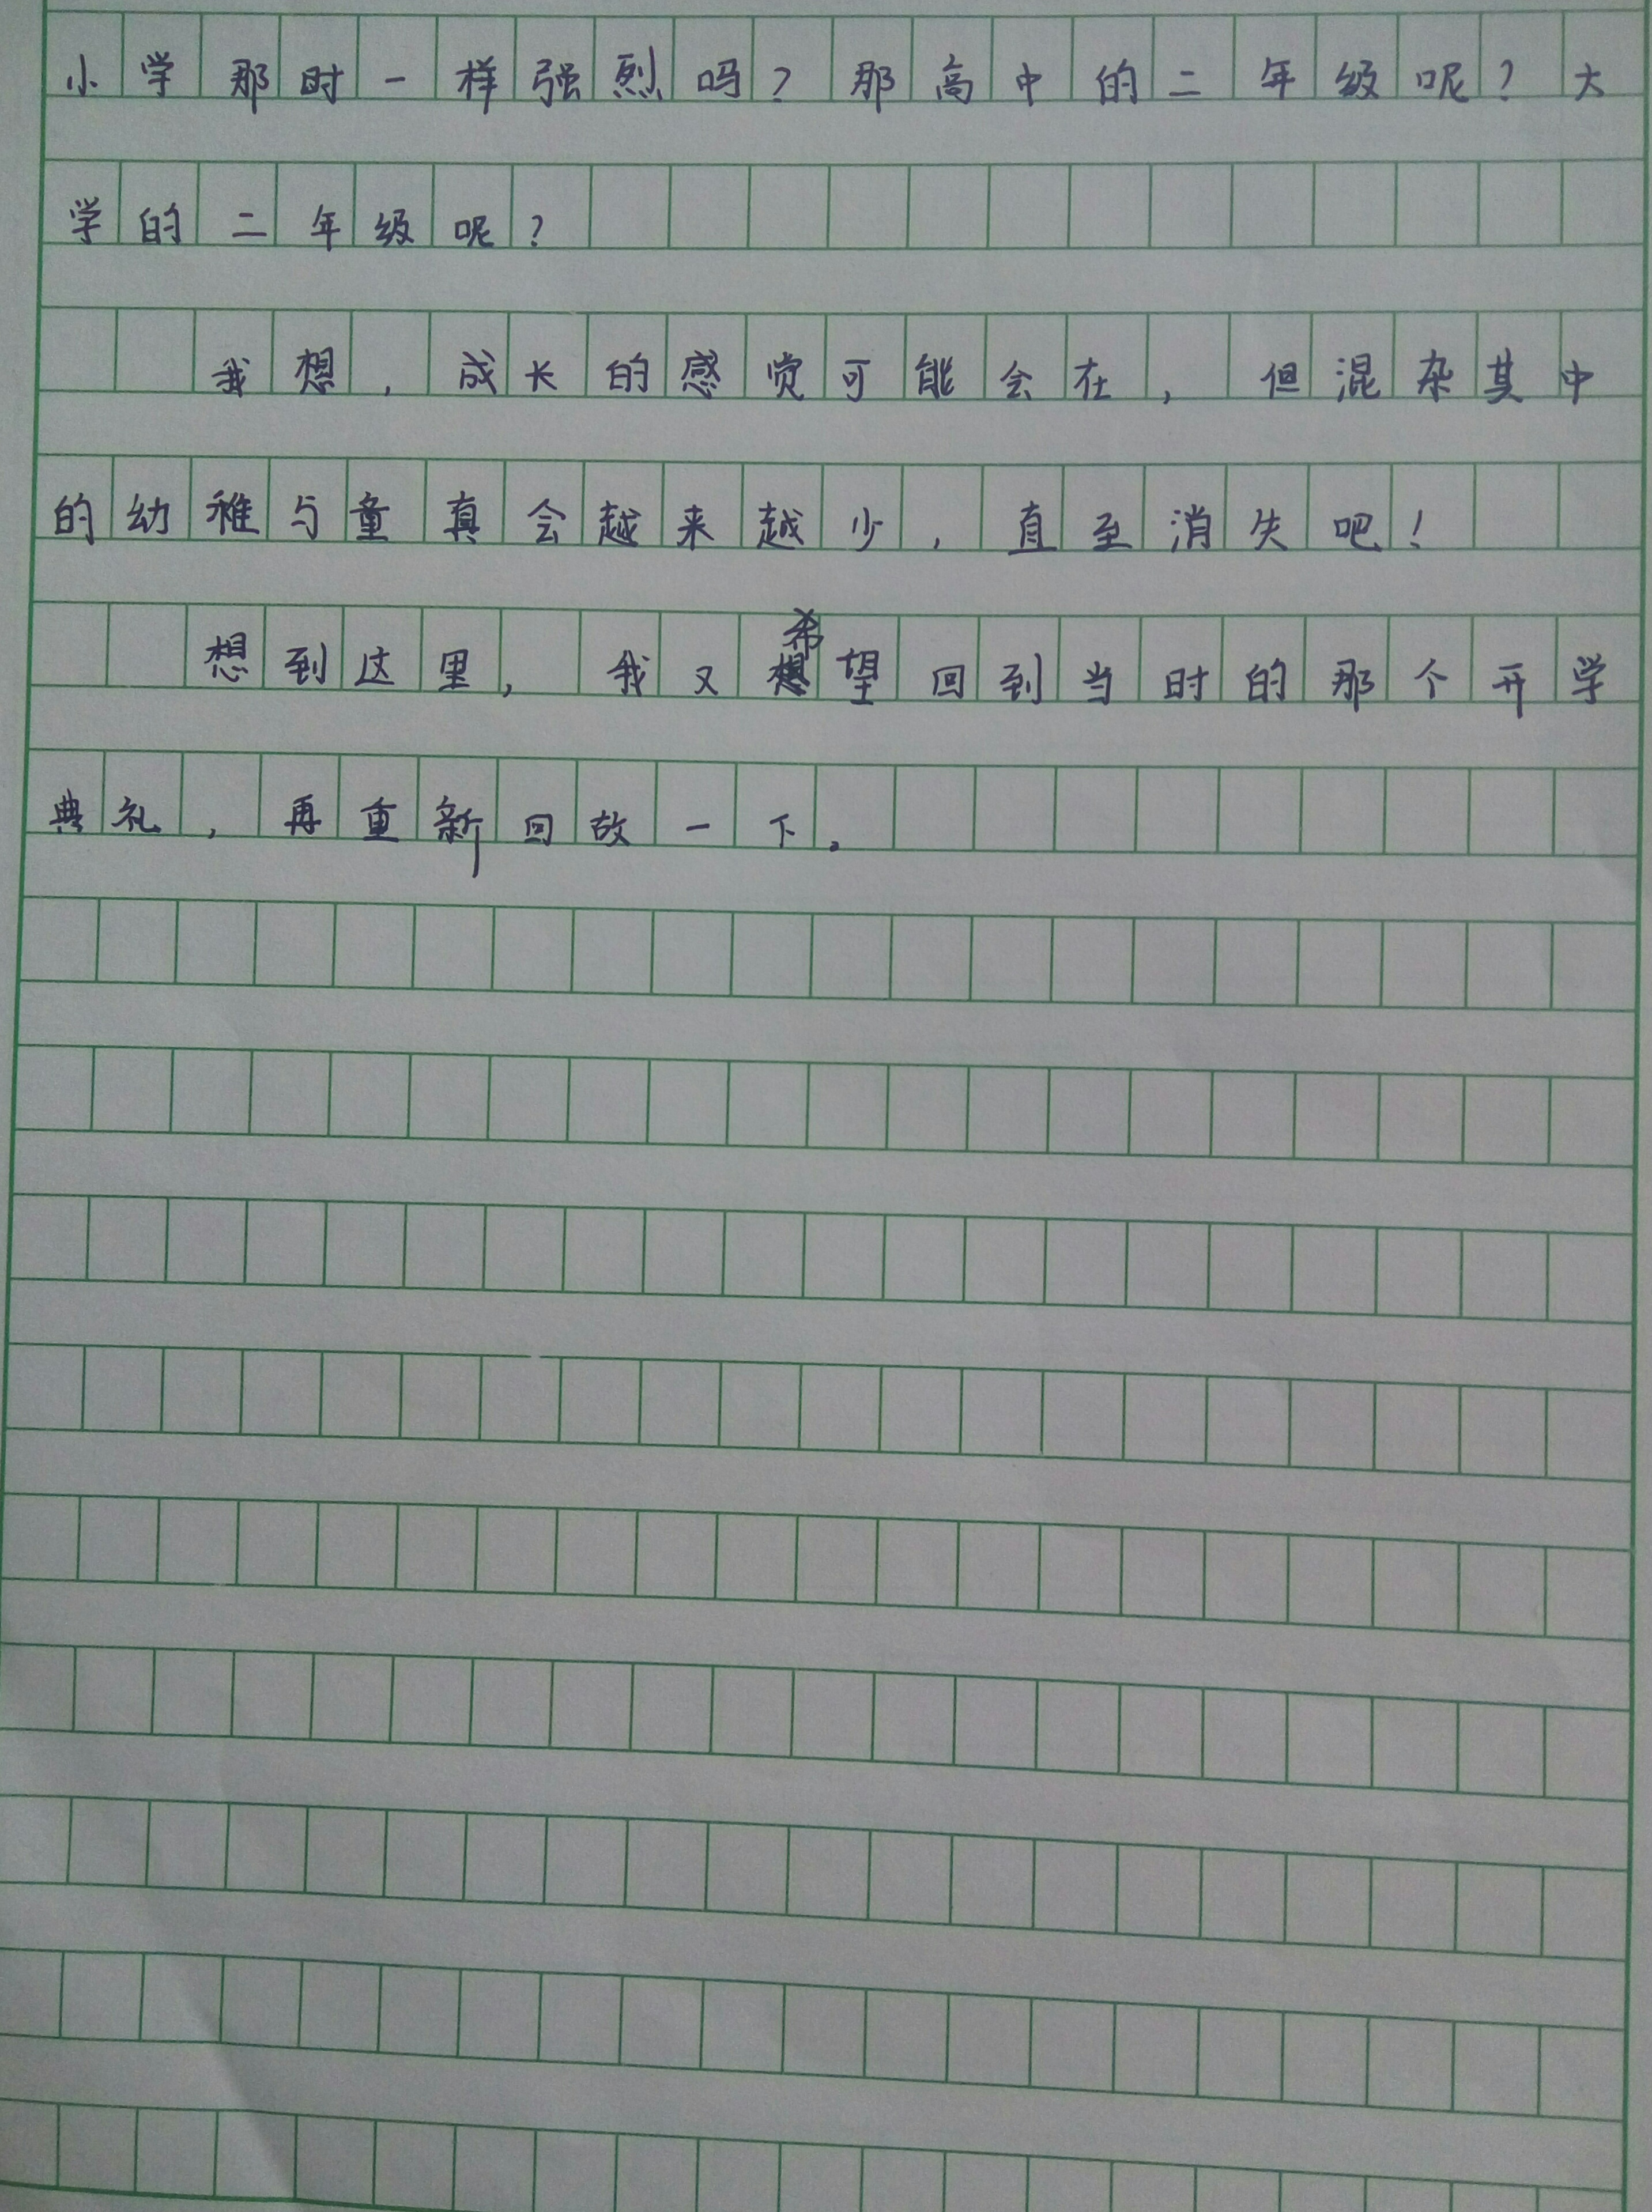 小学那时一样强烈吗？那高中的二年级呢？大
学的二年级呢？
我想，成长的感觉可能会在，但混杂其中
的幼稚与童真会越来越少，直至消失吧！
想到这里，我又希望回到当时的那个开学
典礼，再重新回故一下。